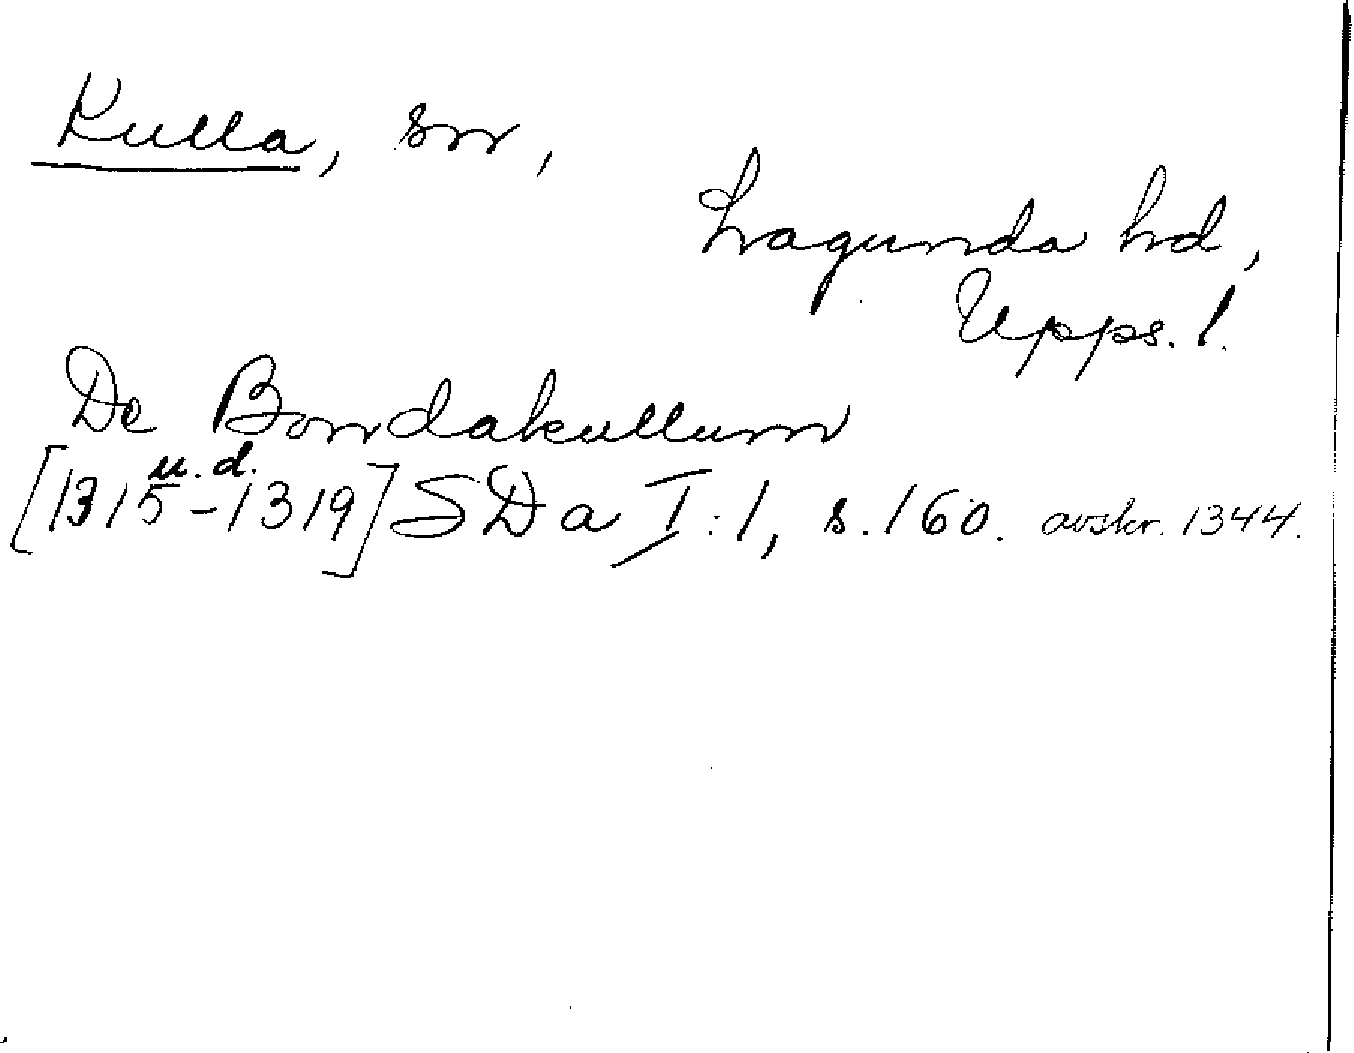 Kulla, sn,
Lagunda hd,
Upps. l.
De Bondakullum
u. d.
[1315-1319] SDa I:1, s. 160. avskr. 1344.